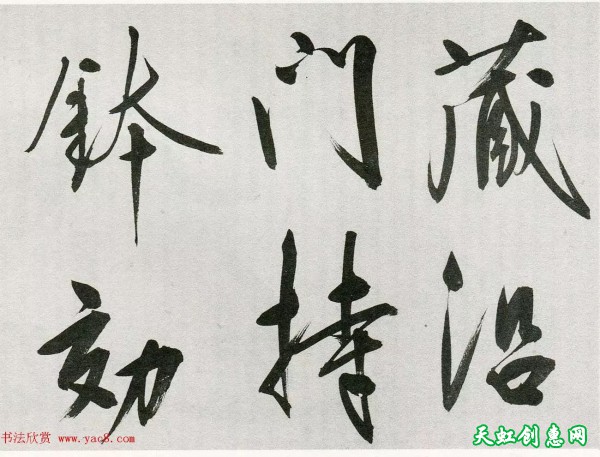 藏沿
门持
鉢効
书法欣赏 www.yac8.com
天虹创惠网